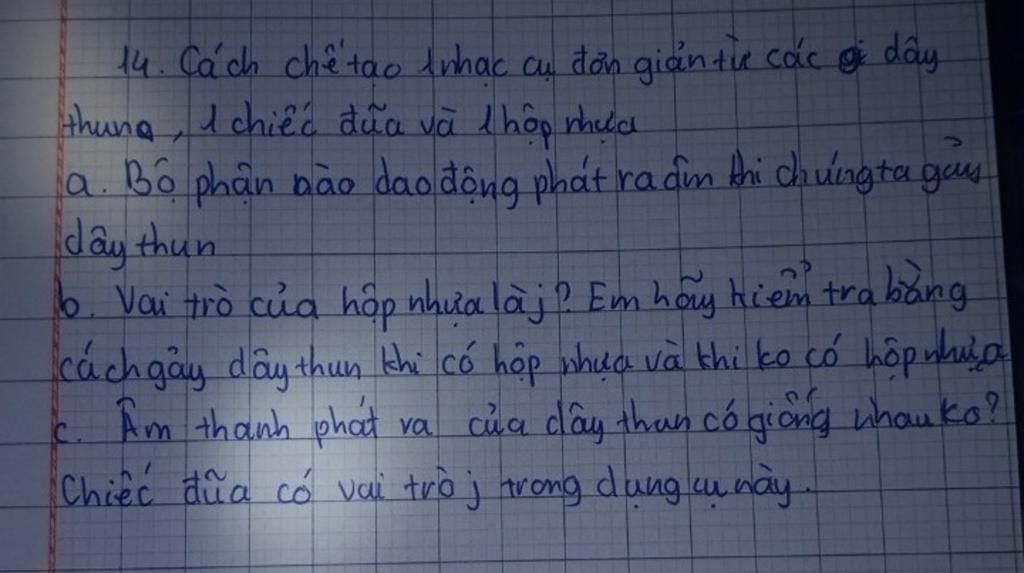 14. Cách chế tạo 1 nhạc cụ đơn giản từ các dây
thung, 1 chiếc đũa và 1 hộp nhựa
a. Bộ phận nào dao động phát ra âm khi chúng ta gảy
dây thun
b. Vai trò của hộp nhựa là j? Em hãy kiểm tra bằng
cách gảy dây thun khi có hộp nhựa và khi ko có hộp nhựa
c. Âm thanh phát ra của dây thun có giống nhau ko?
Chiếc đũa có vai trò j trong dụng cụ này.